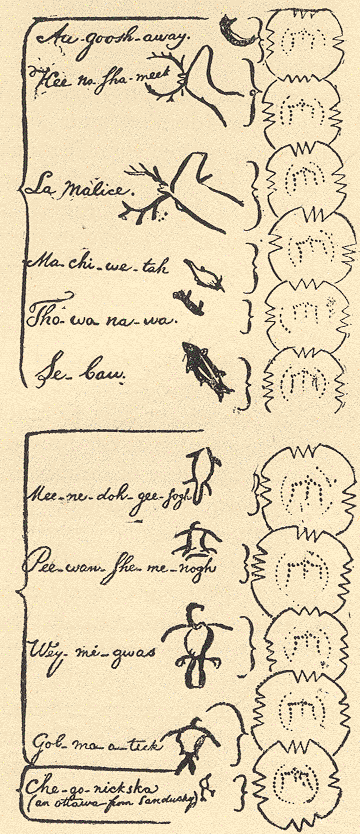 Au-goosh-away.
Kee-no-sha-meek
La Malice.
Ma-chi-we-tah
Tho-wa-na-wa.
Se-bau.
Mee-ne-doh-gee-sogh
Pee-wan-she-me-nogh
Wey-mé-gwas
Gob-ma-a-tick
Che-go-nickska
(an ottawa from Sandusky)